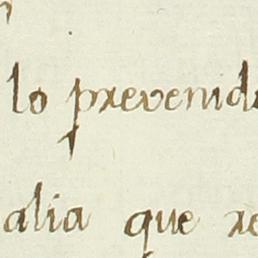 lo prevenid
alia que re